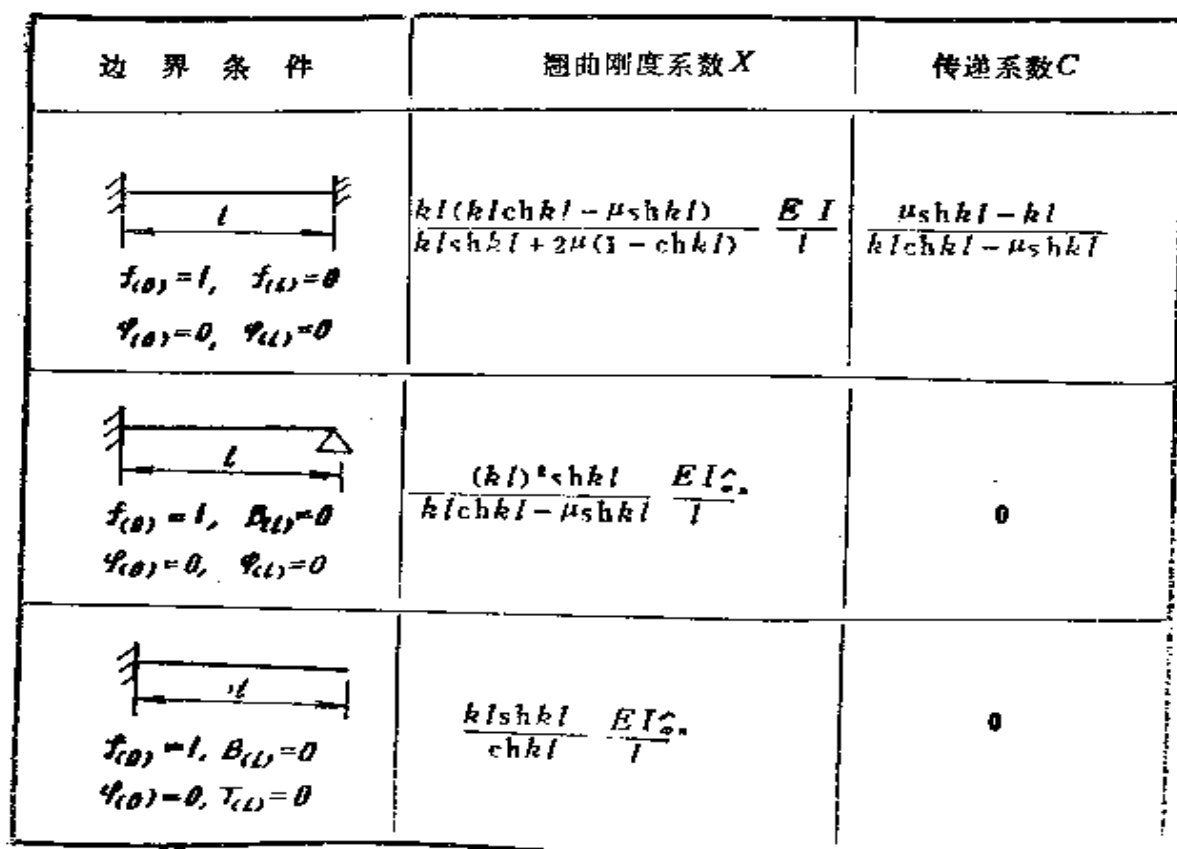 边 界 条 件
翘曲刚度系数X
传递系数C
l
f(0)=1, f(L)=0
φ(0)=0, φ(L)=0
kl(klchkl-μshkl) / klshkl+2μ(1-chkl) E I / l
μshkl-kl / klchkl-μshkl
l
f(0)=1, B(L)=0
φ(0)=0, φ(L)=0
(kl)²shkl / klchkl-μshkl EI / l
0
l
f(0)=1, B(L)=0
φ(0)=0, T(L)=0
klshkl / chkl EI / l
0